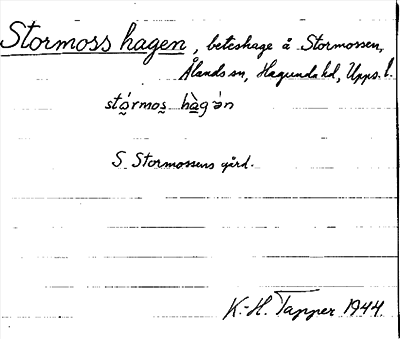 Stormosshagen, beteshage å Stormossen,
Ålands sn, Hagunda hd, Upps. l.
stórmos hàgan
S Stormossens gård.
K.-H. Tapper 1944